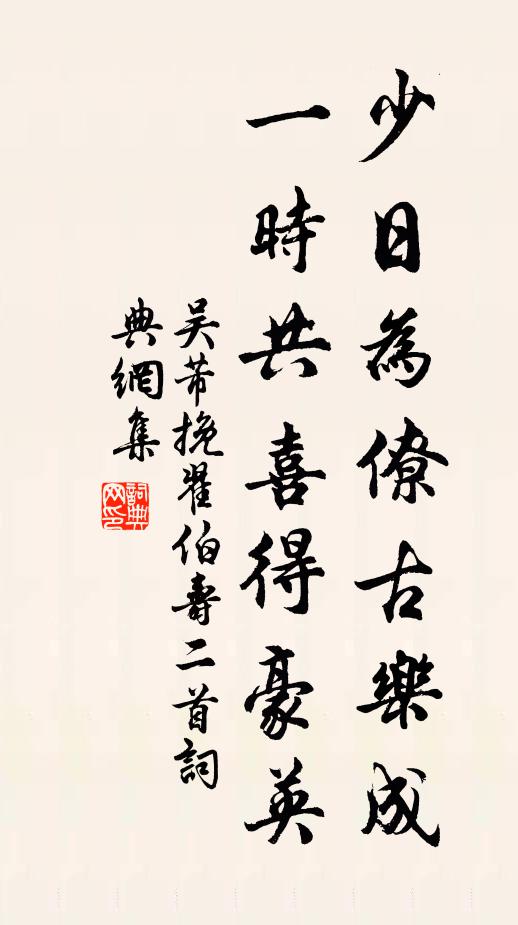 少日為僚古樂成
一時共喜得豪英
吳芾挽翟伯壽二首詞
典網集
詞典
网印